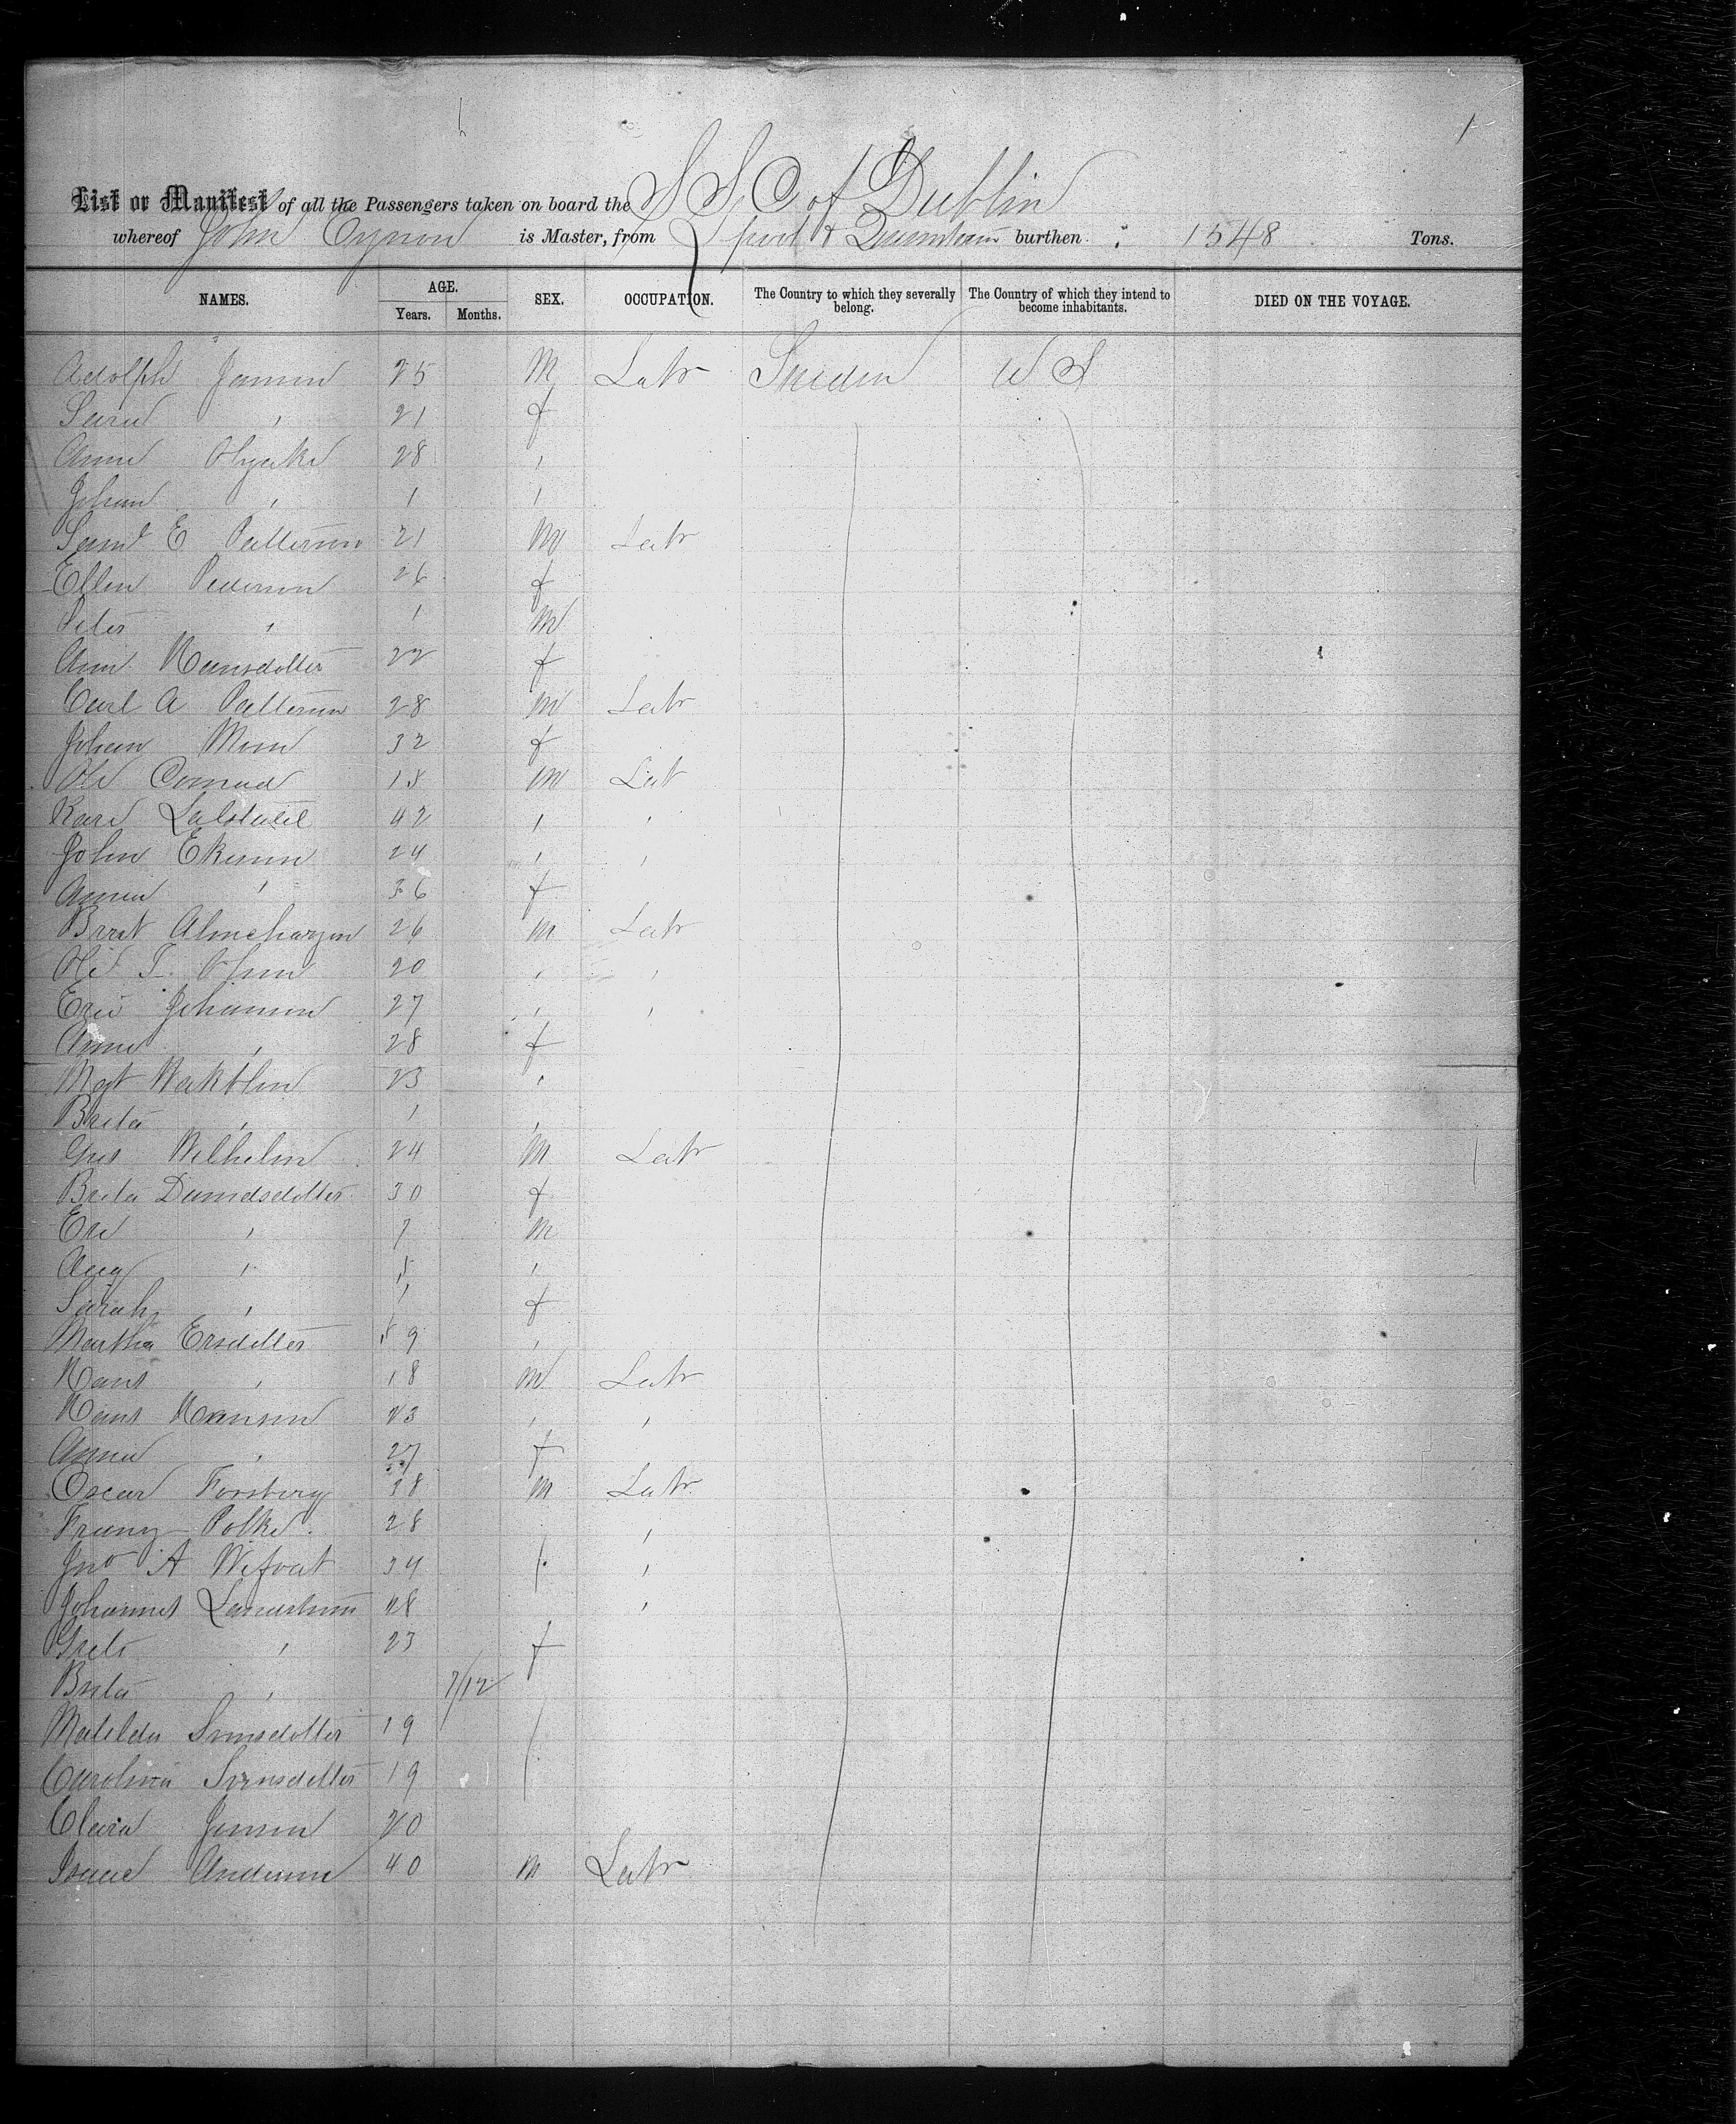 1
List or Manifest of all the Passengers taken on board the S S C of Dublin
whereof John Eynon is Master, from L pool & Queenstown burthen 1548 Tons.
NAMES. AGE. Years. Months. SEX. OCCUPATION. The Country to which they severally belong. The Country of which they intend to become inhabitants. DIED ON THE VOYAGE.
Adolph Jansen 25 M Labr Sweden U S
" 21 f
Anna 28 "
Johan " 1 "
Saml E Patterson 21 M Labr
Ellen Pederson 26 f
Peter " 1 M
Ann Hansdotter 22 f
Carl A Patterson 28 M Labr
Johan 32 f
Ole Conrad 18 M Lab
Kare 42 " "
John Ekman 24 " "
Anna " 36 f
Alnehagen 26 M Labr
Ole T. Olsen 20 " "
Eric Johanson 27 " "
Anna " 28 f
Mgt 23 "
Brita " 1 "
Gus Wilhelm 24 M Labr
Brita Danidsdotter 30 f
" 7 M
Aug " "
Sarah " 1 f
Martha Ersdotter 9 "
Hans " 18 M Labr
Hans Hanson 23 " "
Anna " 27 f
Oscar Forsberg 38 M Labr
Franz Polke 28 "
Jno A 34 "
Johannes 28 "
Greta " 23 f
Brita " 7/12
Matilda Svensdotter 19
Carolina Svensdotter 19
Clara Jansen 20
Isaac Anderson 40 M Labr